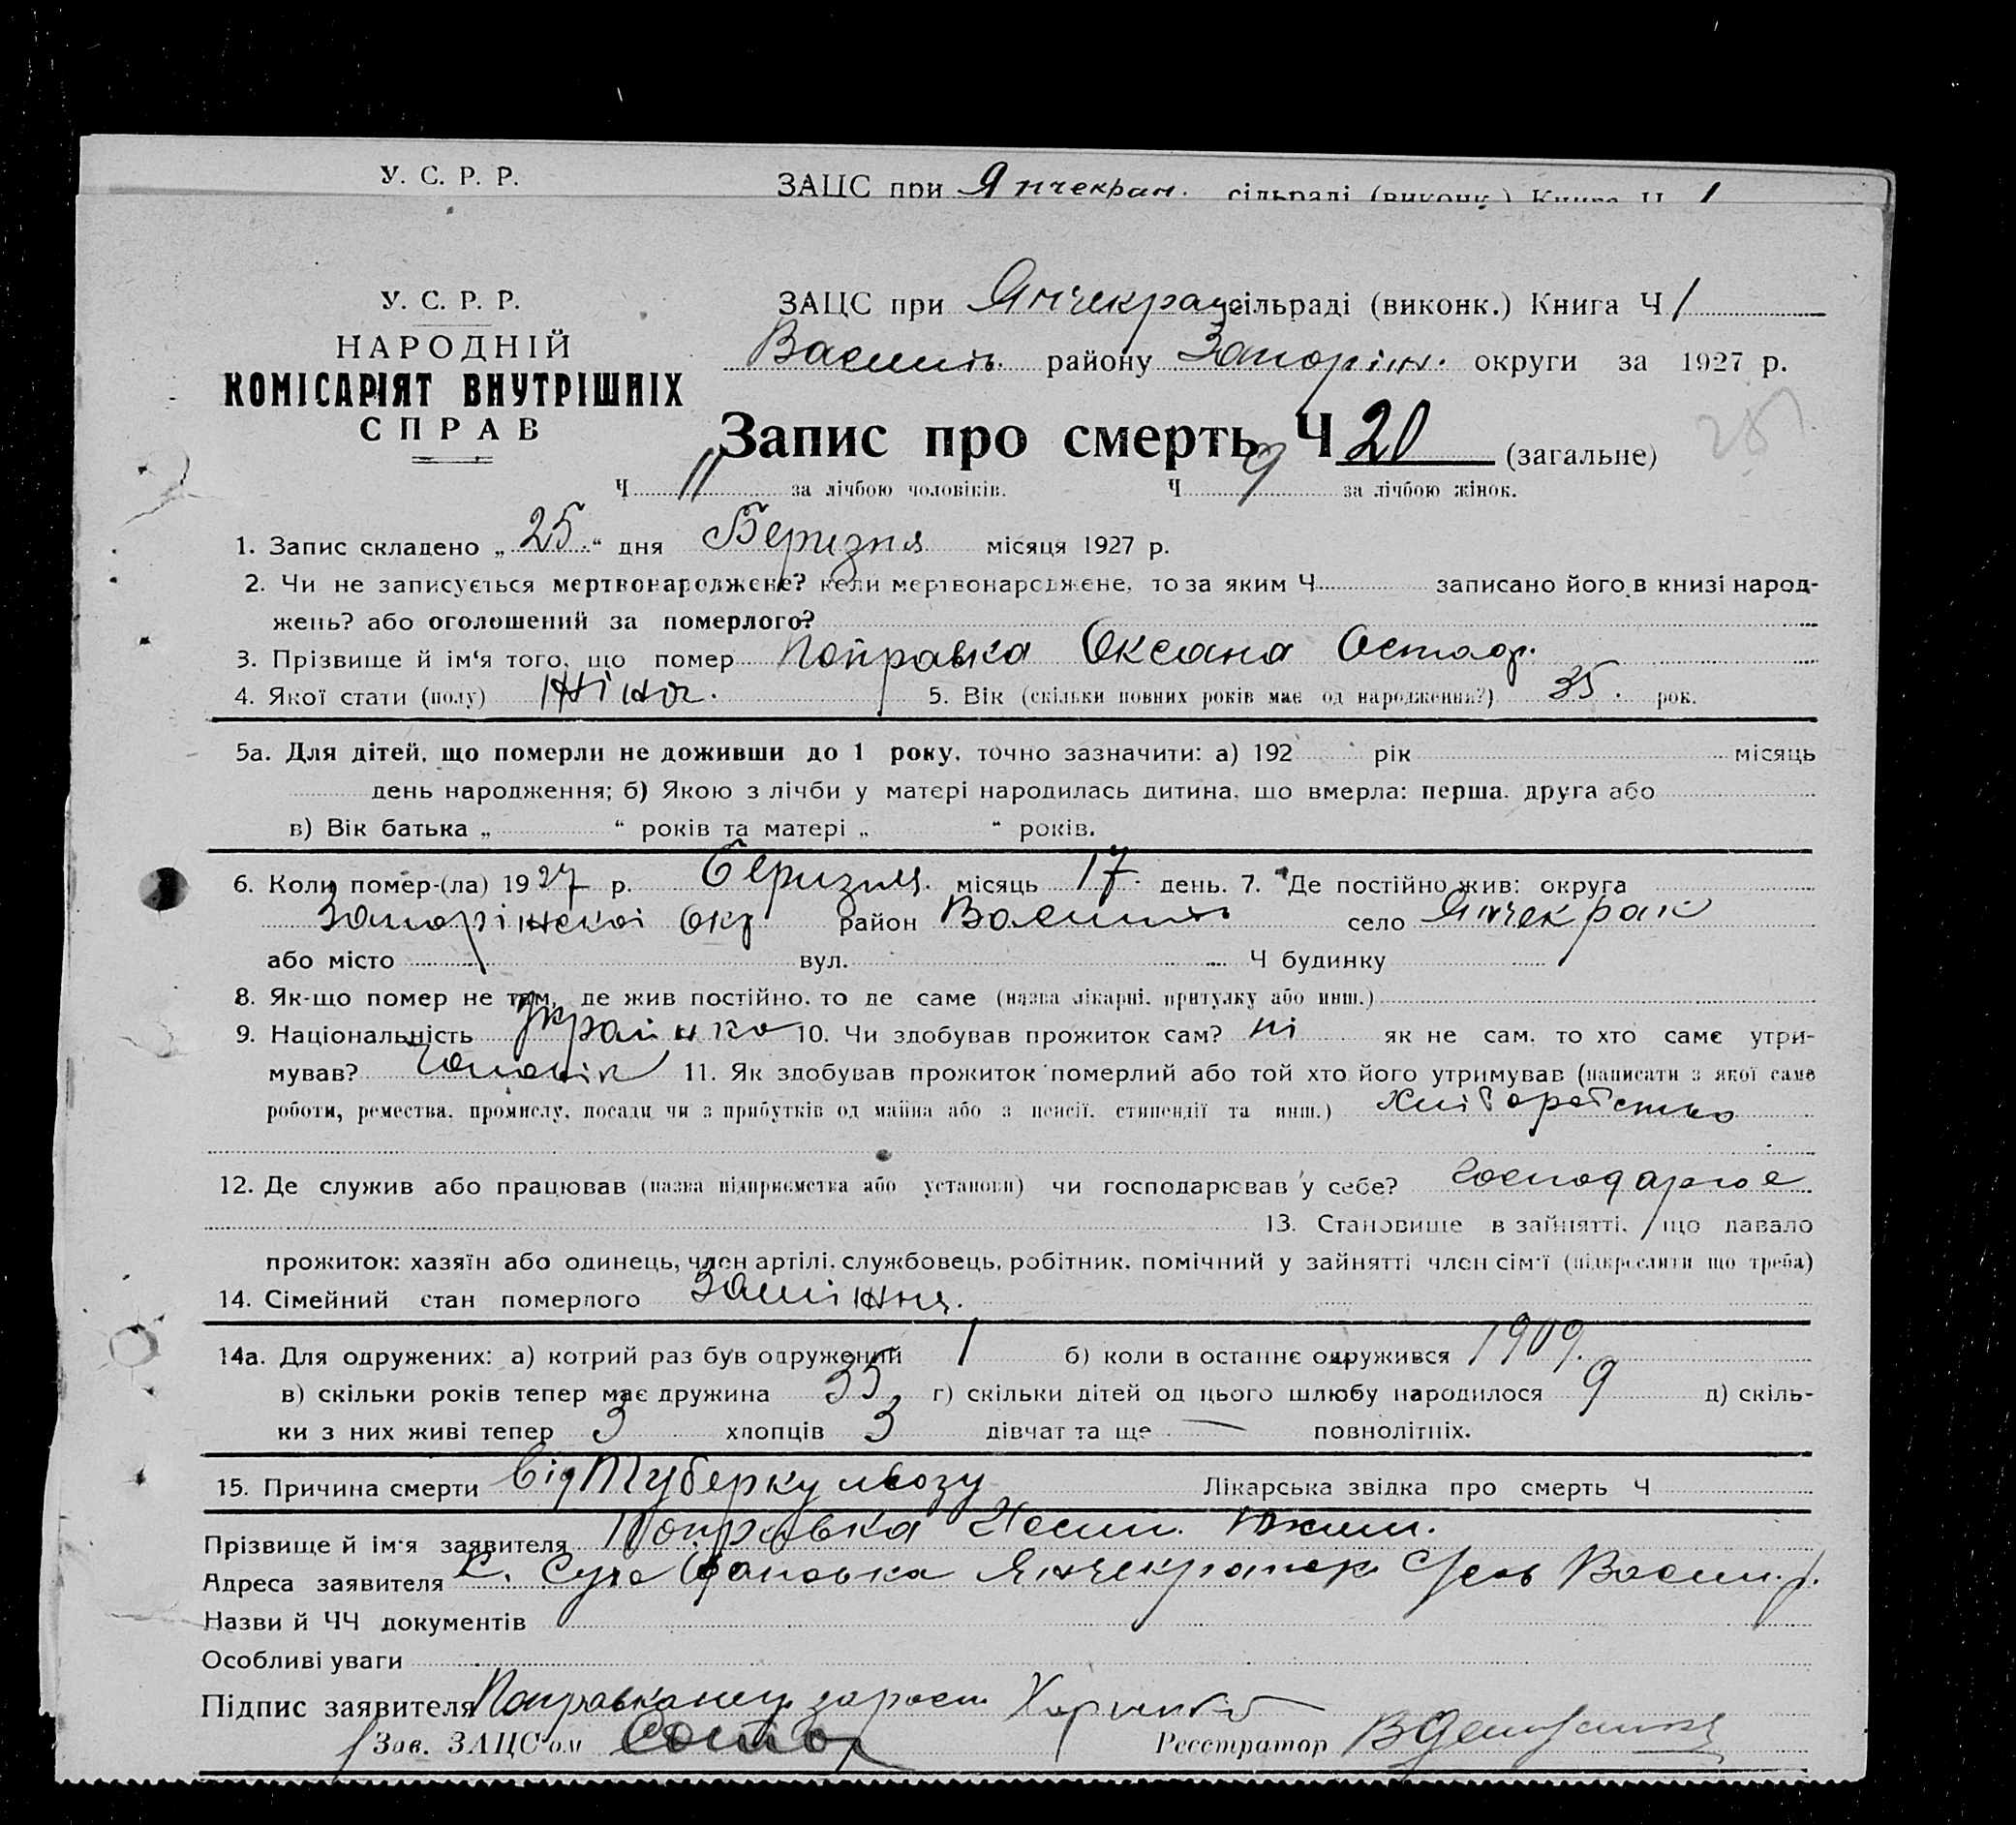 У. С. Р. Р. ЗАЦС при Янчекрак. сільраді (виконк.) Книга Ч 1
У. С. Р. Р.
НАРОДНІЙ
КОМІСАРІЯТ ВНУТРІШНІХ
СПРАВ
ЗАЦС при Янчекрац сільраді (виконк.) Книга Ч 1
Василь. району Запоріж. округи за 1927 р.
Запис про смерть Ч 20 (загальне)
Ч 11 за лічбою чоловіків. Ч 9 за лічбою жінок.
1. Запис складено „25“ дня Березня місяця 1927 р.
2. Чи не записується мертвонароджене? коли мертвонароджене, то за яким Ч записано його в книзі народ-
жень? або оголошений за померлого?
3. Прізвище й ім‘я того, що помер Поправка Оксана Остап.
4. Якої стати (полу) жіноч. 5. Вік (скільки повних років має од народження?) 35. рок.
5а. Для дітей, що померли не доживши до 1 року, точно зазначити: а) 192 рік місяць
день народження; б) Якою з лічби у матері народилась дитина, що вмерла: перша, друга або
в) Вік батька „ “ років та матері „ “ років.
6. Коли помер-(ла) 1927 р. Березня. місяць 17 день. 7. Де постійно жив: округа
Запоріжскої Окр район Василь село Янчекрак
або місто вул. Ч будинку
8. Як-що помер не там, де жив постійно, то де саме (назва лікарні, притулку або инш.)
9. Національність Українка 10. Чи здобував прожиток сам? ні як не сам, то хто саме утри-
мував? Чоловік 11. Як здобував прожиток померлий або той хто його утримував (написати з якої саме
роботи, ремества, промислу, посади чи з прибутків од майна або з пенсії, стипендії та инш.) Хліборобство
12. Де служив або працював (назва підприємства або установи) чи господарював у себе? Господарює
13. Становище в зайнятті, що давало
прожиток: хазяїн або одинець, член артілі, службовець, робітник, помічний у зайнятті член сім‘ї (підкреслити що треба)
14. Сімейний стан померлого Заміжня.
14а. Для одружених: а) котрий раз був одружений 1 б) коли в останнє одружився 1909.
в) скільки років тепер має дружина 35 г) скільки дітей од цього шлюбу народилося 9 д) скіль-
ки з них живі тепер 3 хлопців 3 дівчат та ще — повнолітніх.
15. Причина смерти Від Туберкульозу Лікарська звідка про смерть Ч
Прізвище й ім‘я заявителя Поправка
Адреса заявителя с. Янчекрак Василь. р.
Назви й ЧЧ документів
Особливі уваги
Підпис заявителя Поправка
Зав. ЗАЦС‘ом Реєстратор